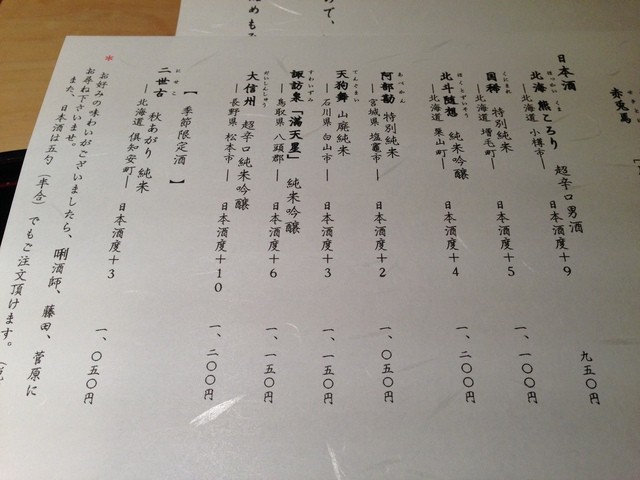 赤兎馬
日本酒
ほっかい くま
北海 熊ころり 超辛口 男酒 日本酒度+9 九五〇円
―北海道 小樽市―
くにまれ
国稀 特別純米 日本酒度+5 一、一〇〇円
―北海道 増毛町―
ほくとずいそう
北斗随想 純米吟醸 日本酒度+4 一、二〇〇円
―北海道 栗山町―
あべかん
阿部勘 特別純米 日本酒度+2 一、〇五〇円
―宮城県 塩竈市―
てんぐまい
天狗舞 山廃純米 日本酒度+3 一、一五〇円
―石川県 白山市―
すわいずみ
諏訪泉「満天星」 純米吟醸 日本酒度+6 一、一五〇円
―鳥取県 八頭郡―
だいしんしゅう
大信州 超辛口 純米吟醸 日本酒度+10 一、二〇〇円
―長野県 松本市―
【 季節限定酒 】
にせこ
二世古 秋あがり 純米 日本酒度+3 一、〇五〇円
―北海道 倶知安町―
※ お好みの味わいがございましたら、唎酒師、藤田、菅原に
お尋ね下さいませ。
また、日本酒は五勺(半合)でもご注文頂けます。